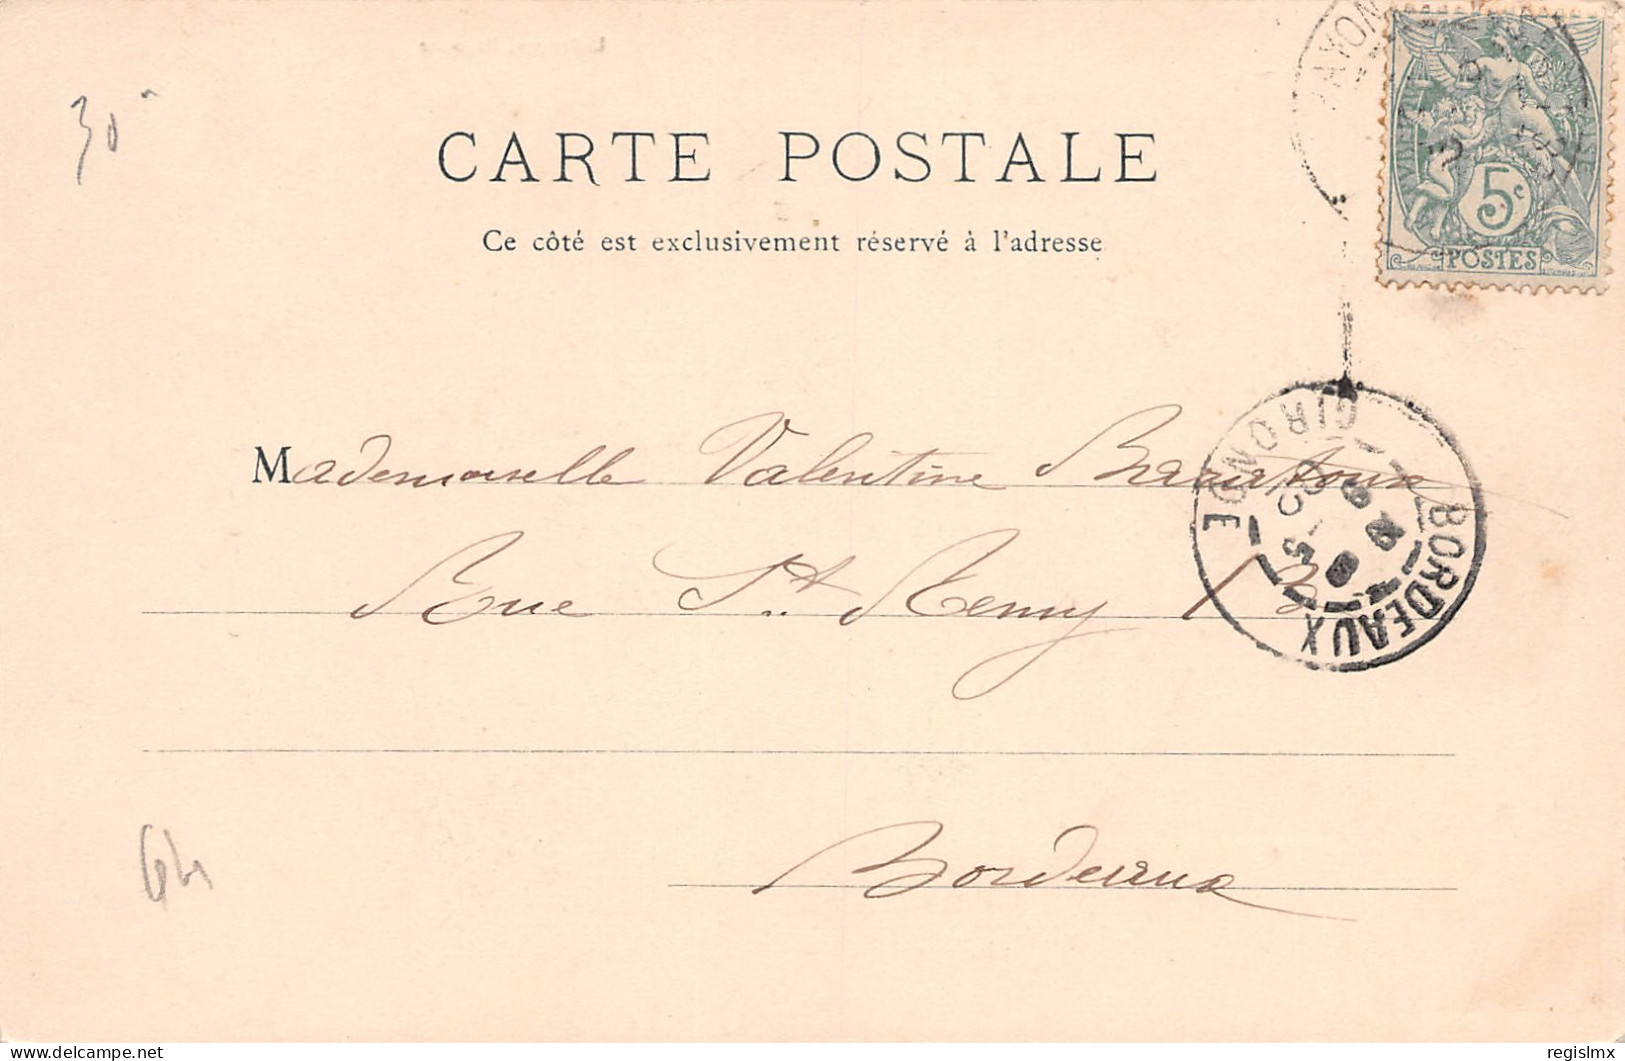 30
CARTE POSTALE
Ce côté est exclusivement réservé à l'adresse
5c
POSTES
Mademoiselle Valentine
Rue St Remy 13
Bordeaux
BORDEAUX
GIRONDE
64
www.delcampe.net
regislmx